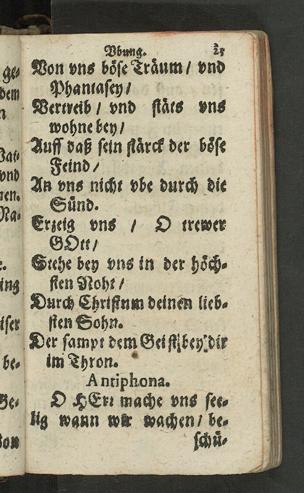 Vbung.
Von vns böse Träum / vnd
Phantasey /
Vertreib / vnd stäts vns
wohne bey /
Auff daß sein stärck der böse
Feind /
An vns nicht vbe durch die
Sünd.
Erzeig vns / O trewer
GOtt /
Stehe bey vns in der höch-
sten Noht /
Durch Christum deinen lieb-
sten Sohn.
Der sampt dem Geist / bey dir
im Thron.
Antiphona.
O HErr mache vns see-
lig wann wir wachen / be-
schü-